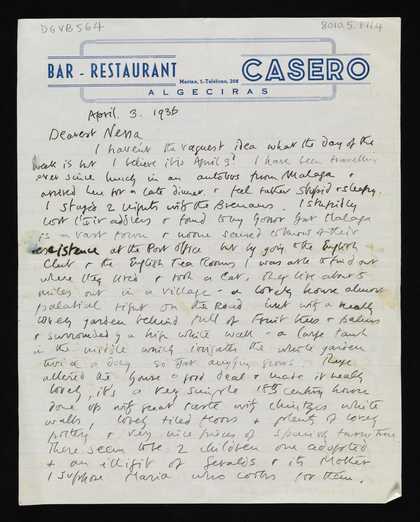 DGVB564
8010.5.1164
BAR - RESTAURANT CASERO
ALGECIRAS
April. 3. 1936
Dearest Nessa
I havent the vaguest idea what the day of the
week is but I believe it is April 3rd I have been travelling
ever since lunch in an autobus from Malaga &
arrived here for a late dinner. & feel rather stupid & sleepy.
I stayed 2 nights with the Brenans. I stupidly
lost their address & found to my horror that Malaga
is a vast town & no one seemed conscious of their
existence at the Post Office but by going to the English
Club & the English Tea Rooms I was able to find out
where they lived & took a Car, they live about 5
miles out in a village - a lovely house almost
palatial right on the Road but with a really
lovely garden behind full of Fruit trees & palms
& surrounded by a high white wall - a large tank
in the middle which irrigates the whole garden
twice a day so that anything grows. They've
altered the house a good deal & made it really
lovely, it's a very simple 18th century house
done up with great taste with chintzes white
walls, lovely tiled floors & plenty of lovely
pottery & very nice pieces of Spanish furniture
There seem to be 2 children one adopted
& an illigit of Geralds & its Mother
I suppose Maria who cooks for them.